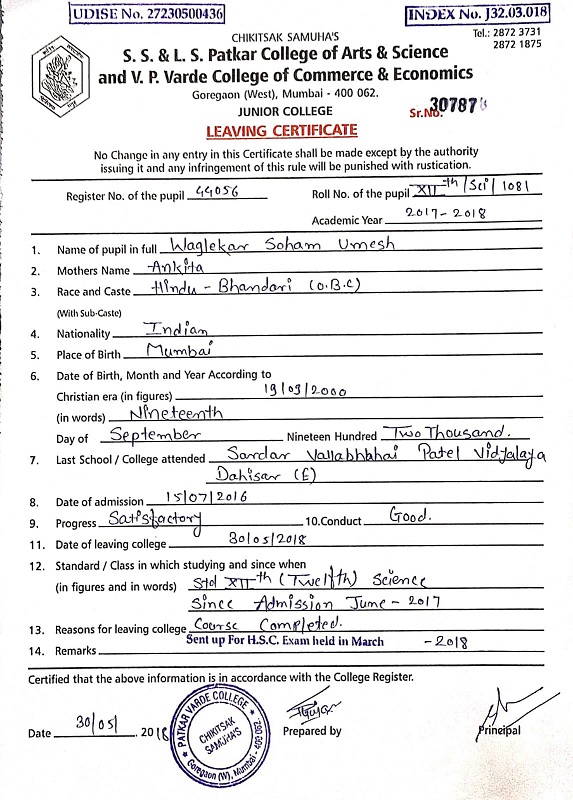 UDISE No. 27230500436
INDEX No. J32.03.018
CHIKITSAK SAMUHA'S
Tel.: 2872 3731
2872 1875
S. S. & L. S. Patkar College of Arts & Science
and V. P. Varde College of Commerce & Economics
Goregaon (West), Mumbai - 400 062.
JUNIOR COLLEGE
Sr.No. 30787
LEAVING CERTIFICATE
No Change in any entry in this Certificate shall be made except by the authority
issuing it and any infringement of this rule will be punished with rustication.
Register No. of the pupil 44056 Roll No. of the pupil XII-th/Sci/1081
Academic Year 2017-2018
1. Name of pupil in full Waglekar Soham Umesh
2. Mothers Name Ankita
3. Race and Caste Hindu - Bhandari (O.B.C)
(With Sub-Caste)
4. Nationality Indian
5. Place of Birth Mumbai
6. Date of Birth, Month and Year According to
Christian era (in figures) 19/09/2000
(in words) Nineteenth
Day of September Nineteen Hundred Two Thousand.
7. Last School / College attended Sardar Vallabhbhai Patel Vidyalaya
Dahisar (E)
8. Date of admission 15/07/2016
9. Progress Satisfactory 10.Conduct Good.
11. Date of leaving college 30/05/2018
12. Standard / Class in which studying and since when
(in figures and in words) Std XIIth (Twelfth) Science
Since Admission June - 2017
13. Reasons for leaving college Course Completed.
14. Remarks Sent up For H.S.C. Exam held in March - 2018
Certified that the above information is in accordance with the College Register.
Date 30/05/ 2018
PATKAR VARDE COLLEGE
CHIKITSAK
SAMUHA'S
Goregaon (W), Mumbai - 400 062.
Prepared by
Principal